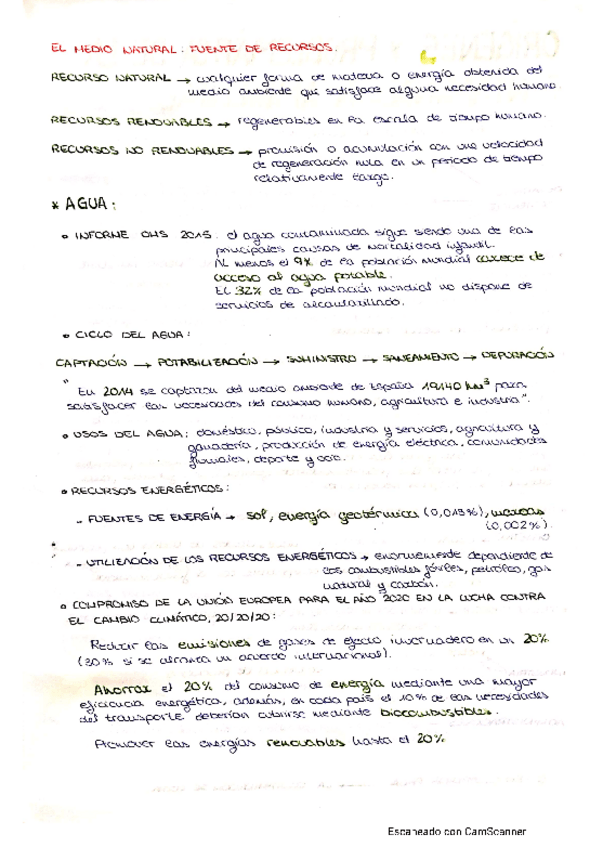 EL MEDIO NATURAL: FUENTE DE RECURSOS.
RECURSO NATURAL → cualquier forma de materia o energía obtenida del
medio ambiente que satisface alguna necesidad humana.
RECURSOS RENOVABLES → regenerables en la escala de tiempo humano.
RECURSOS NO RENOVABLES → provisión o acumulación con una velocidad
de regeneración nula en un periodo de tiempo
relativamente largo.
* AGUA:
• INFORME OMS 2015: el agua contaminada sigue siendo una de las
principales causas de mortalidad infantil.
AL menos el 9% de la población mundial carece de
acceso al agua potable.
EL 32% de la población mundial no dispone de
servicios de alcantarillado.
• CICLO DEL AGUA:
CAPTACIÓN → POTABILIZACIÓN → SUMINISTRO → SANEAMIENTO → DEPURACIÓN
"En 2014 se captaron del medio ambiente de España 19140 hm³ para
satisfacer las necesidades del consumo humano, agricultura e industria".
• USOS DEL AGUA: doméstico, público, industria y servicios, agricultura y
ganadería, producción de energía eléctrica, comunidades
fluviales, deporte y ocio.
• RECURSOS ENERGÉTICOS:
- FUENTES DE ENERGÍA → sol, energía geotérmica (0,013%), mareas
(0,002%)
- UTILIZACIÓN DE LOS RECURSOS ENERGÉTICOS → enormemente dependiente de
los combustibles fósiles, petróleo, gas
natural y carbón.
• COMPROMISO DE LA UNIÓN EUROPEA PARA EL AÑO 2020 EN LA LUCHA CONTRA
EL CAMBIO CLIMÁTICO, 20/20/20:
Reducir las emisiones de gases de efecto invernadero en un 20%
(30% si se alcanza un acuerdo internacional).
Ahorrar el 20% del consumo de energía mediante una mayor
eficiencia energética, además, en cada país el 10% de las necesidades
del transporte deberían cubrirse mediante biocombustibles.
Promover las energías renovables hasta el 20%
Escaneado con CamScanner